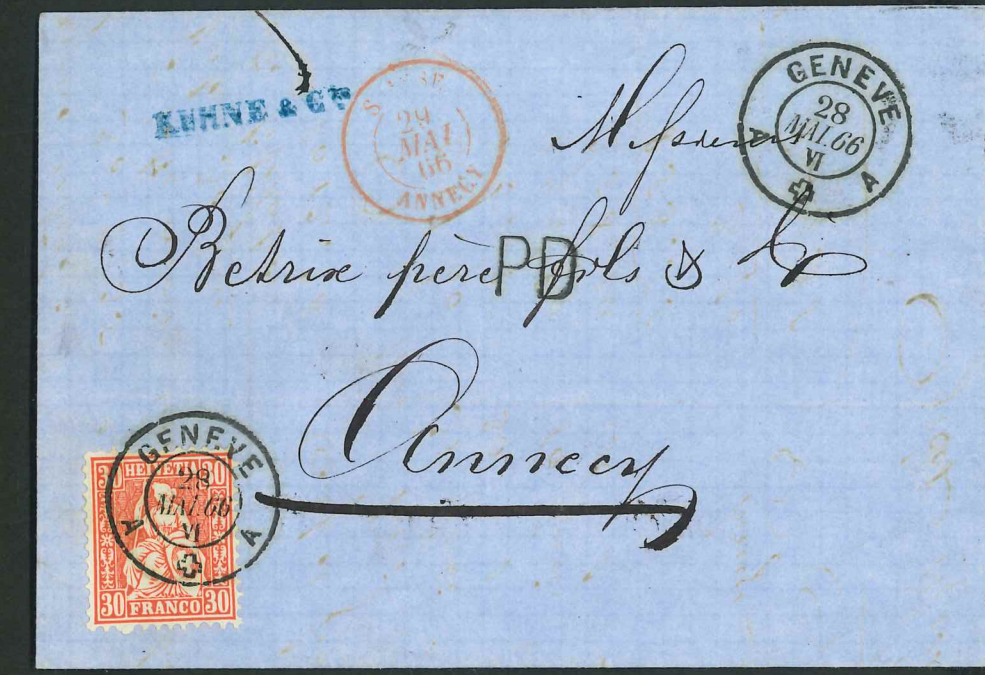 KUHNE & Cie
SUISSE
29
MAI
66
ANNECY
GENEVE
28
MAI.66
VI
A A
Messieurs
Betrix père fils & Cie
PD
Annecy
GENEVE
28
MAI.66
VI
A A
30 HELVETIA 30
30 FRANCO 30